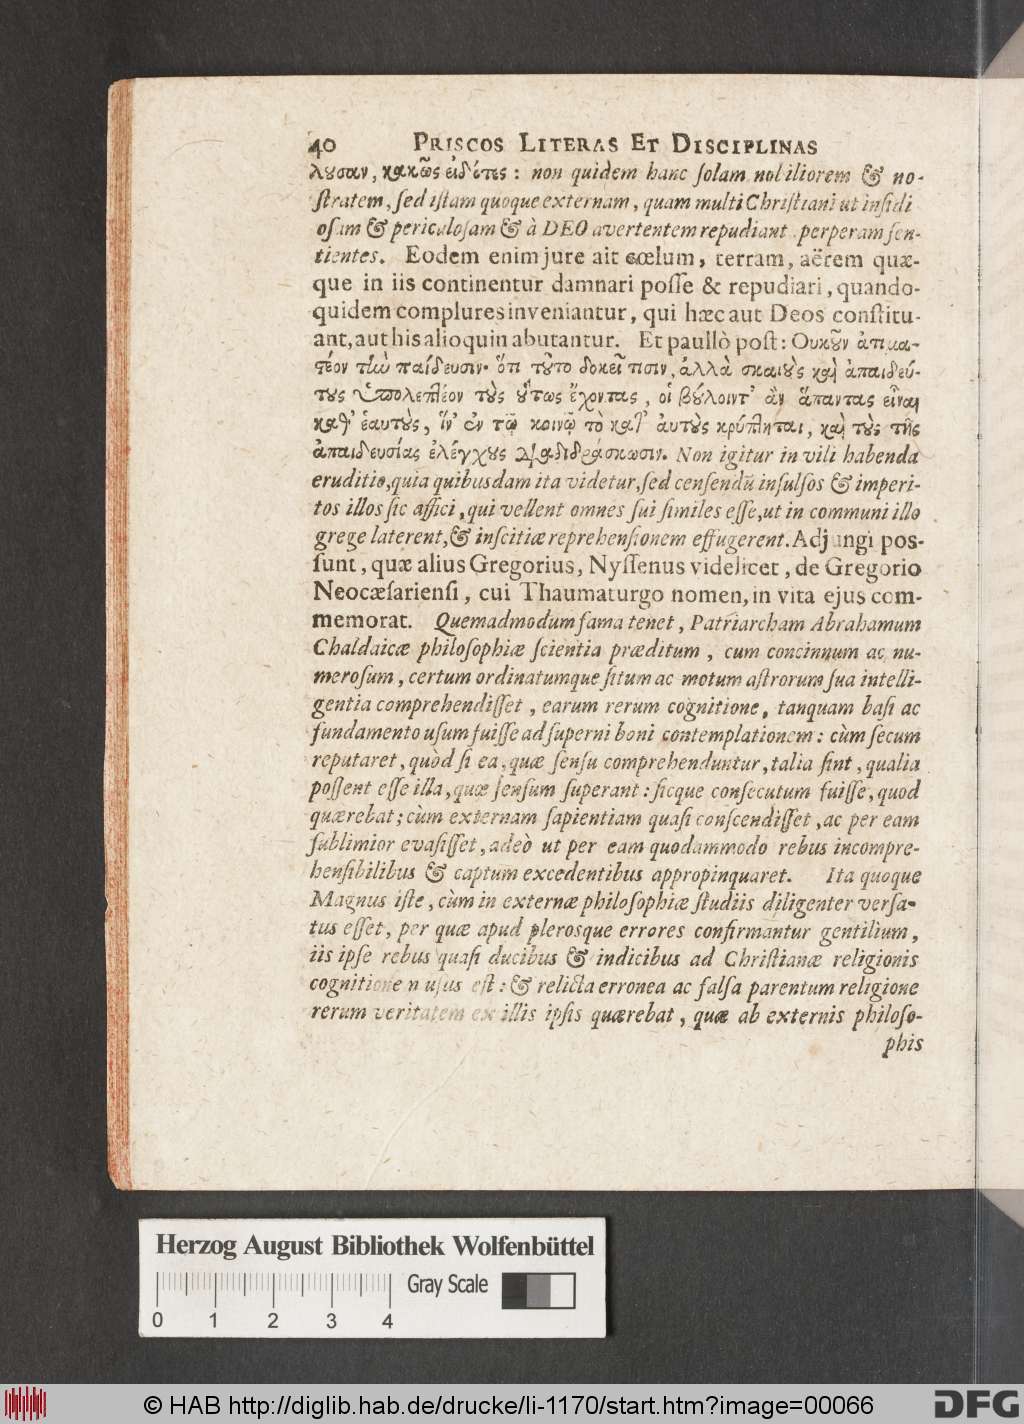 40 PRISCOS LITERAS ET DISCIPLINAS
λουσαν, κακῶς εἰδότες: non quidem hanc ſolam nobiliorem & no-
ſtratem, ſed iſtam quoque externam, quam multi Chriſtiani ut inſidi
oſam & periculoſam & à DEO avertentem repudiant perperam ſen-
tientes. Eodem enim jure ait cœlum, terram, aërem quæ-
que in iis continentur damnari poſſe & repudiari, quando-
quidem complures inveniantur, qui hæc aut Deos conſtitu-
ant, aut his alioquin abutantur. Et paullò poſt: Ουκοῦν ἀτιμα-
ςέον τὴν παίδευσιν· ὅτι τοῦτο δοκεῖ τισιν, ἀλλὰ σκαιοὺς καὶ ἀπαιδεύ-
τους ὑπολεπτέον τοὺς οὕτως ἔχοντας, οἱ βούλοιντ' ἂν ἅπαντας εἶναι
καθ' ἑαυτοὺς, ἵν' ἐν τῷ κοινῷ τὸ κατ' αὐτοὺς κρύπτηται, καὶ τοὺς τῆς
ἀπαιδευσίας ἐλέγχους διαδιδράσκωσιν. Non igitur in vili habenda
eruditio, quia quibusdam ita videtur, ſed cenſendū inſulſos & imperi-
tos illos ſic affici, qui vellent omnes ſui ſimiles eſſe, ut in communi illo
grege laterent, & inſcitiæ reprehenſionem effugerent. Adjungi pos-
ſunt, quæ alius Gregorius, Nyſſenus videlicet, de Gregorio
Neocæſarienſi, cui Thaumaturgo nomen, in vita ejus com-
memorat. Quemadmodum fama tenet, Patriarcham Abrahamum
Chaldaicæ philoſophiæ ſcientia præditum, cum concinnum ac nu-
meroſum, certum ordinatumque ſitum ac motum aſtrorum ſua intelli-
gentia comprehendiſſet, earum rerum cognitione, tanquam baſi ac
fundamento uſum fuiſſe ad ſuperni boni contemplationem: cùm ſecum
reputaret, quòd ſi ea, quæ ſenſu comprehenduntur, talia ſint, qualia
poſſent eſſe illa, quæ ſenſum ſuperant: ſicque conſecutum fuiſſe, quod
quærebat; cùm externam ſapientiam quaſi conſcendiſſet, ac per eam
ſublimior evaſiſſet, adeò ut per eam quodammodo rebus incompre-
henſibilibus & captum excedentibus appropinquaret. Ita quoque
Magnus iſte, cùm in externæ philoſophiæ ſtudiis diligenter verſa-
tus eſſet, per quæ apud plerosque errores confirmantur gentilium,
iis ipſe rebus quaſi ducibus & indicibus ad Chriſtianæ religionis
cognitione n uſus eſt: & relicta erronea ac falſa parentum religione
rerum veritatem ex illis ipſis quærebat, quæ ab externis philoſo-
phis
Herzog August Bibliothek Wolfenbüttel
Gray Scale
0 1 2 3 4
© HAB http://diglib.hab.de/drucke/li-1170/start.htm?image=00066
DFG